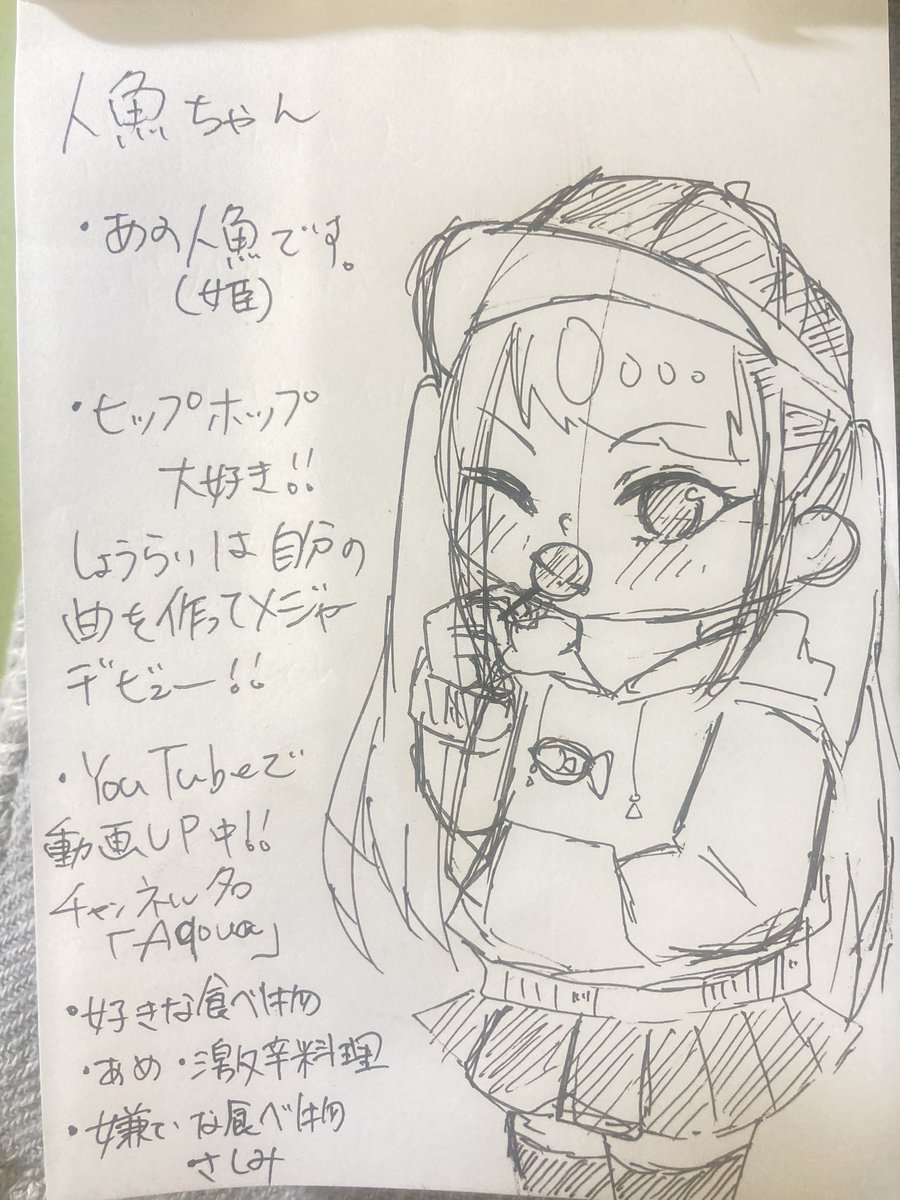 人魚ちゃん
・あの人魚です。
(姫)
・ヒップホップ
大好き!!
しょうらいは自分の
曲を作ってメジャー
デビュー!!
・YouTubeで
動画UP中!!
チャンネル名
「Aqoua」
・好きな食べ物
・あめ・激辛料理
・嫌いな食べ物
・さしみ